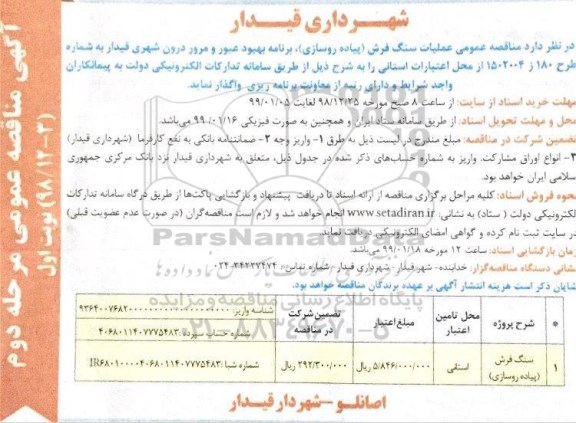 شهرداری قیدار
آگهی مناقصه عمومی مرحله دوم
(۹۸/۱۲-۳) نوبت اول
در نظر دارد مناقصه عمومی عملیات سنگ فرش (پیاده روسازی)، برنامه بهبود عبور و مرور درون شهری قیدار به شماره
طرح ۱۸۰ از ۱۵۰۲۰۰۴ از محل اعتبارات استانی را به شرح ذیل از طریق سامانه تدارکات الکترونیکی دولت به پیمانکاران
واجد شرایط و دارای رتبه از معاونت برنامه ریزی واگذار نماید.
مهلت خرید اسناد از سایت: از ساعت ۸ صبح مورخه ۹۸/۱۲/۲۵ لغایت ۹۹/۰۱/۰۵
محل و مهلت تحویل اسناد: از طریق سامانه ستاد ایران و همچنین به صورت فیزیکی ۹۹/۰۱/۱۶ می‌باشد.
تضمین شرکت در مناقصه: مبلغ مندرج در لیست ذیل به طرق ۱- واریز وجه ۲- ضمانتنامه بانکی به نفع کارفرما (شهرداری قیدار)
۳- انواع اوراق مشارکت. واریز به شماره حساب‌های ذکر شده در جدول ذیل، متعلق به شهرداری قیدار نزد بانک مرکزی جمهوری
اسلامی ایران خواهد بود.
نحوه فروش اسناد: کلیه مراحل برگزاری مناقصه از ارائه اسناد تا دریافت پیشنهاد و بازگشایی پاکت‌ها از طریق درگاه سامانه تدارکات
الکترونیکی دولت (ستاد) به نشانی: www.setadiran.ir انجام خواهد شد و لازم است مناقصه‌گران (در صورت عدم عضویت قبلی)
در سایت ثبت نام کرده و گواهی امضای الکترونیکی دریافت نمایند.
زمان بازگشایی اسناد: ساعت ۱۲ مورخه ۹۹/۰۱/۱۸ می باشد.
نشانی دستگاه مناقصه‌گزار: خدابنده- شهر قیدار- شهرداری قیدار- شماره تماس: ۰۲۴-۳۴۲۲۷۴۷۴
شایان ذکر است هزینه انتشار آگهی بر عهده برندگان مناقصه خواهد بود.
ParsNamadData
پایگاه اطلاع رسانی مناقصه و مزایده
۰۲۱-۸۸۳۴۹۶۷۰-۵
شرح پروژه محل تامین اعتبار مبلغ اعتبار تضمین شرکت در مناقصه شناسه واریز:
شماره حساب سپرده: ۴۰۶۸۰۱۱۴۰۷۷۷۵۴۸۳
۱ سنگ فرش (پیاده روسازی) استانی ۵/۸۴۶/۰۰۰/۰۰۰ ریال ۲۹۲/۳۰۰/۰۰۰ ریال شماره شبا: IR۶۸۰۱۰۰۰۰۴۰۶۸۰۱۱۴۰۷۷۷۵۴۸۳
اصانلو - شهردار قیدار